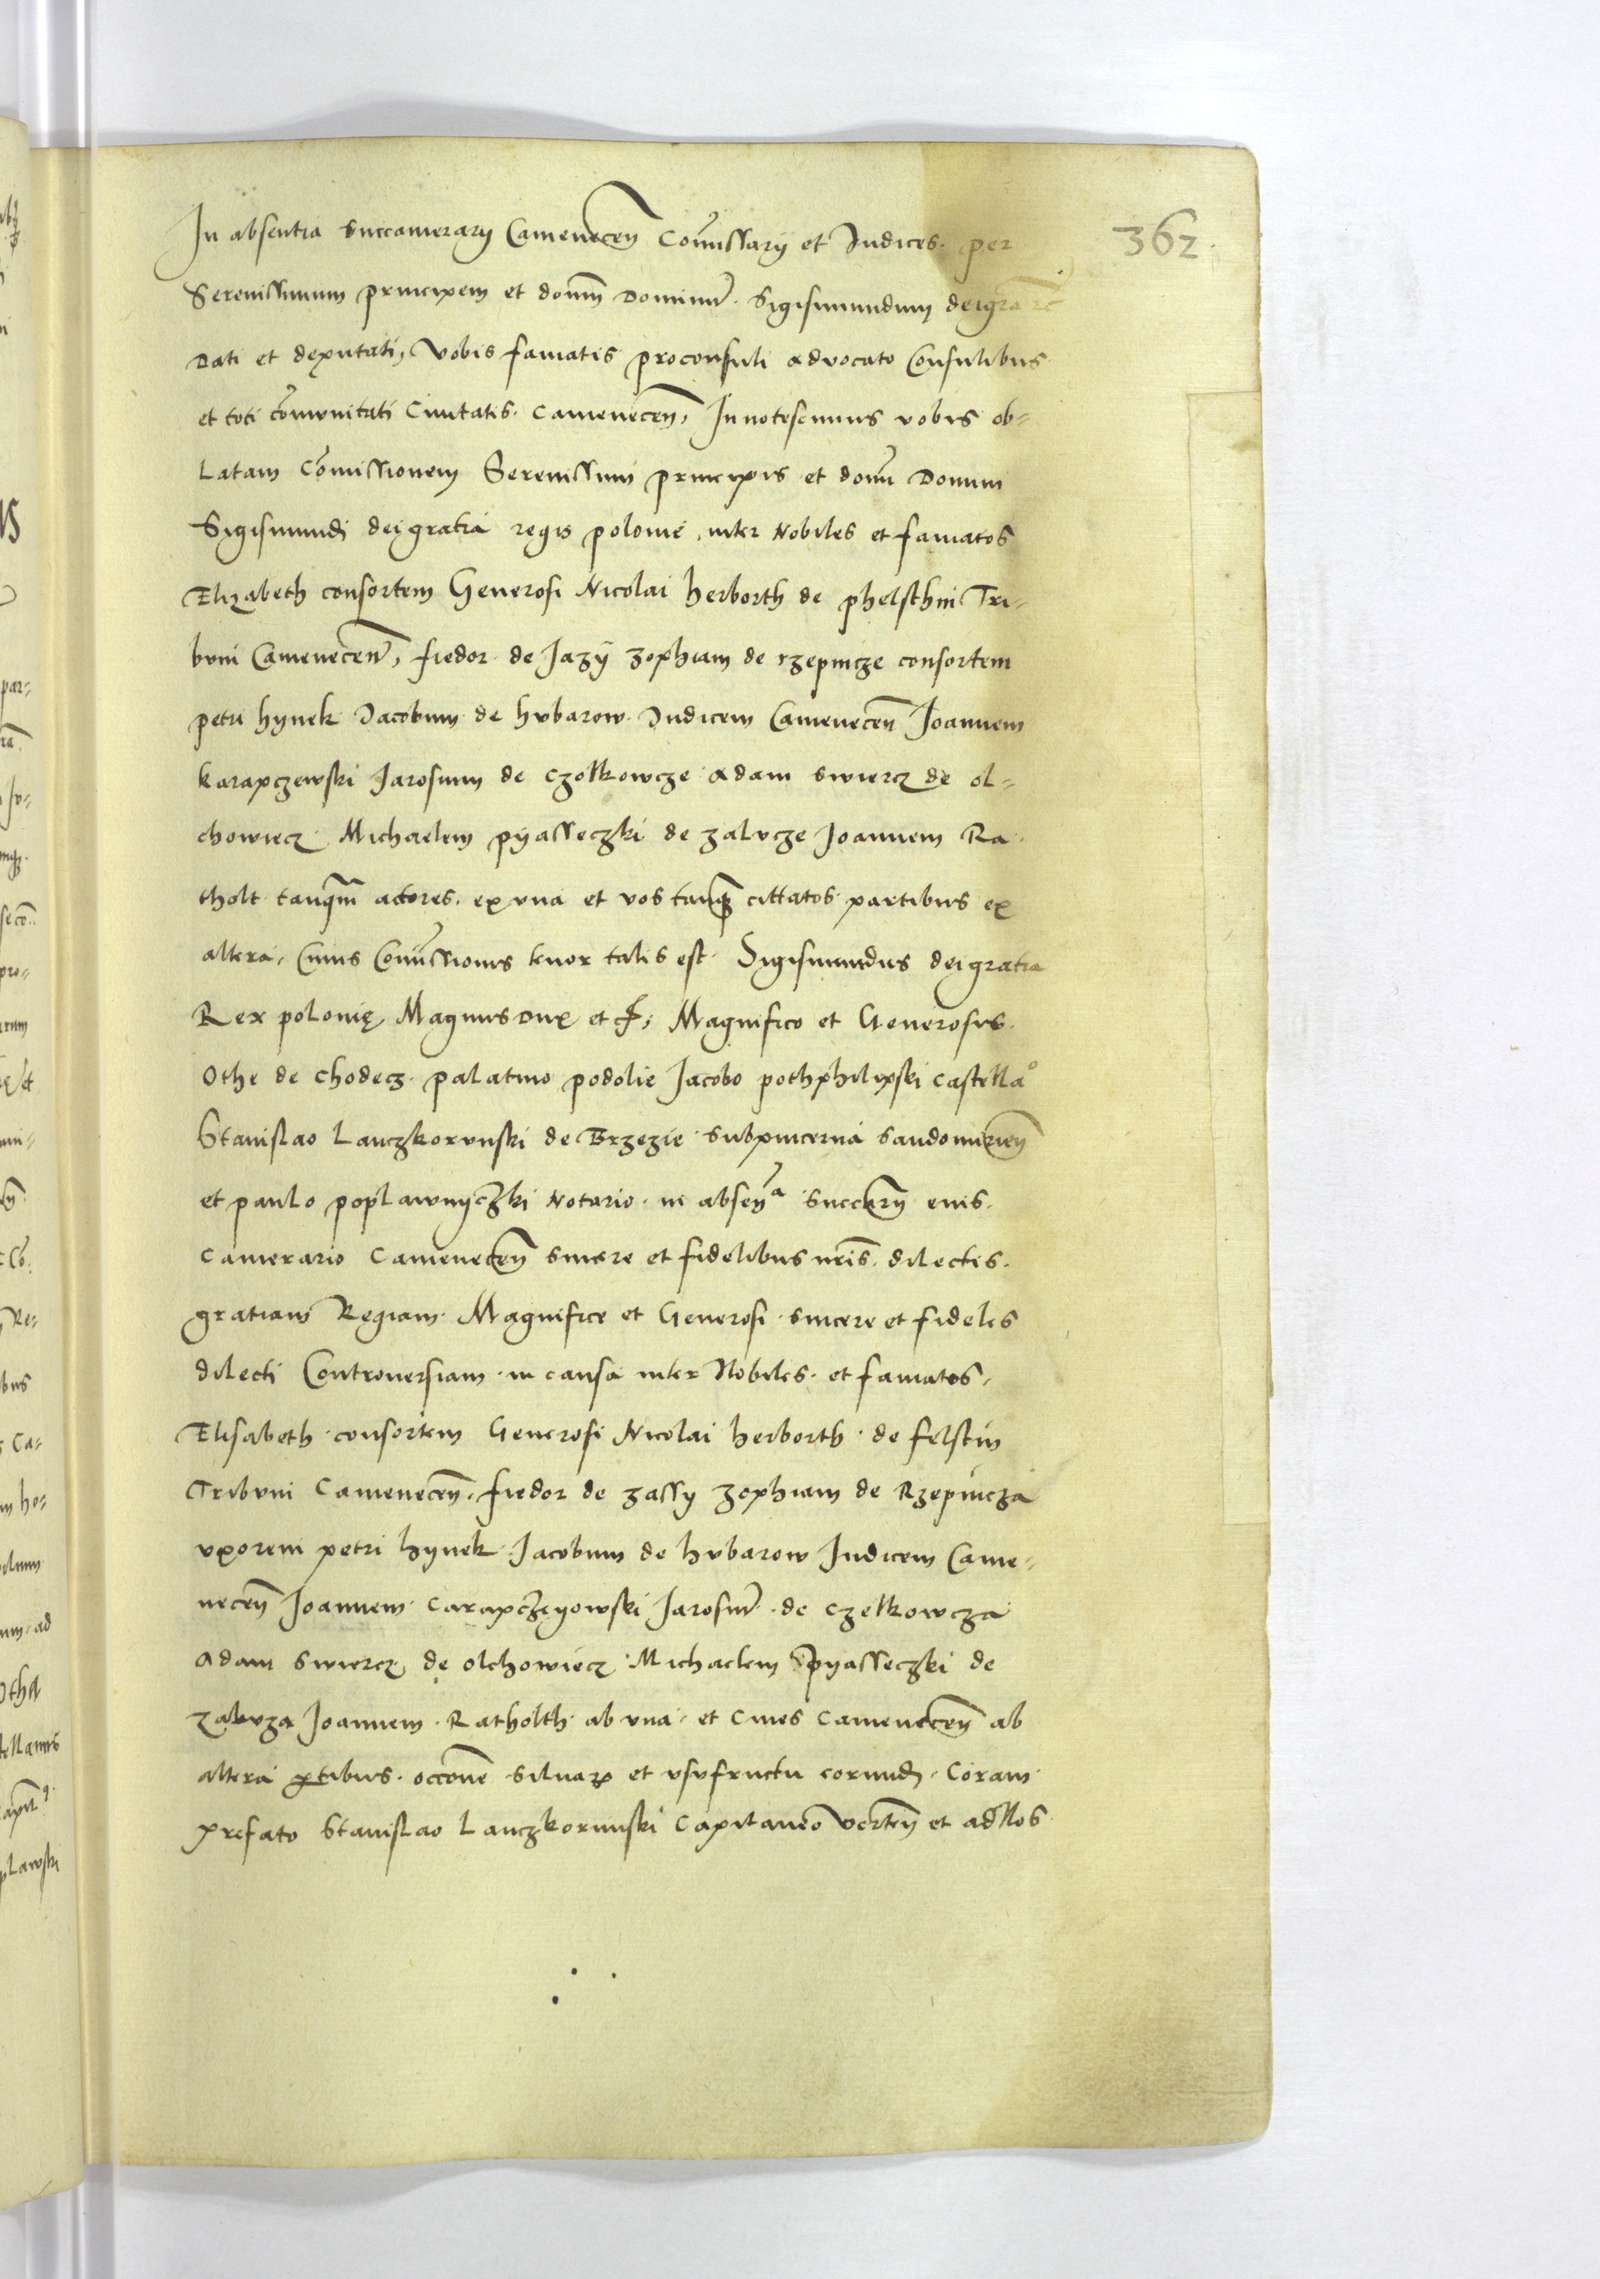 362.
In absentia succamerarij Camenecen Comissarij et Iudices. per
Serenissimum principem et domm Dominum. Sigismundum dei gra re
Dati et deputati, vobis famatis proconsuli advocato Consulibus
et toti comvnitati Ciuitatis. Camenecen, Innotescimus vobis ob-
Latam Comissionem Serenissimi principis et domi Domini
Sigismundi dei gratia regis polonie, inter Nobiles et famatos
Elizabeth consortem Generosi Nicolai herborth de phelschin Tri-
bvni Camenecen, fiedor de Jazÿ zophiam de rzepincze consortem
petri hynek Jacobum de hvbarow. Iudicem Camenecen Joannem
karapczewski Jarosium de czolkowcze Adam swiercz de ol-
chowiecz Michaelem pyasseczki de zalvcze Joannem Ra-
tholt tanqm actores. ex vna et vos tanq cittatos partibus ex
altera, Cuius Comissionis tenor talis est. Sigismundus dei gratia
Rex polonię Magnus Dux etc, Magnifico et Generosis.
Othe de chodecz. palatino podolie Jacobo pothphilipski castellaº
Stanislao Lanczkorvnski de Brzezie subpincerna sandomirien
et paulo poplawnyczki Notario. in absena succrij eius.
Camerario Camenecen sincere et fidelibus nris. dilectis.
gratiam Regiam. Magnifice et Generosi. sincere et fideles
dilecti Controuersiam in causa inter Nobiles. et famatos,
Elisabeth consortem Generosi Nicolai herborth. de felstin
Tribvni Camenecen, fiedor de zassy zophiam de Rzepincza
vxorem petri hynek Jacobum de hvbarow Iudicem Came-
necen Joannem Carapczeyowski Jarosium de czelkowcza
Adam swiercz de olchowiecz Michaelem Spyasseczki de
zalvza Joannem. Ratholth ab vna, et Ciues Camenecen ab
altera ptibus. occone siluarum et vsvfructu eorumd. Coram
prefato Stanislao Lanczkorunski Capitaneo verten et ad Nos